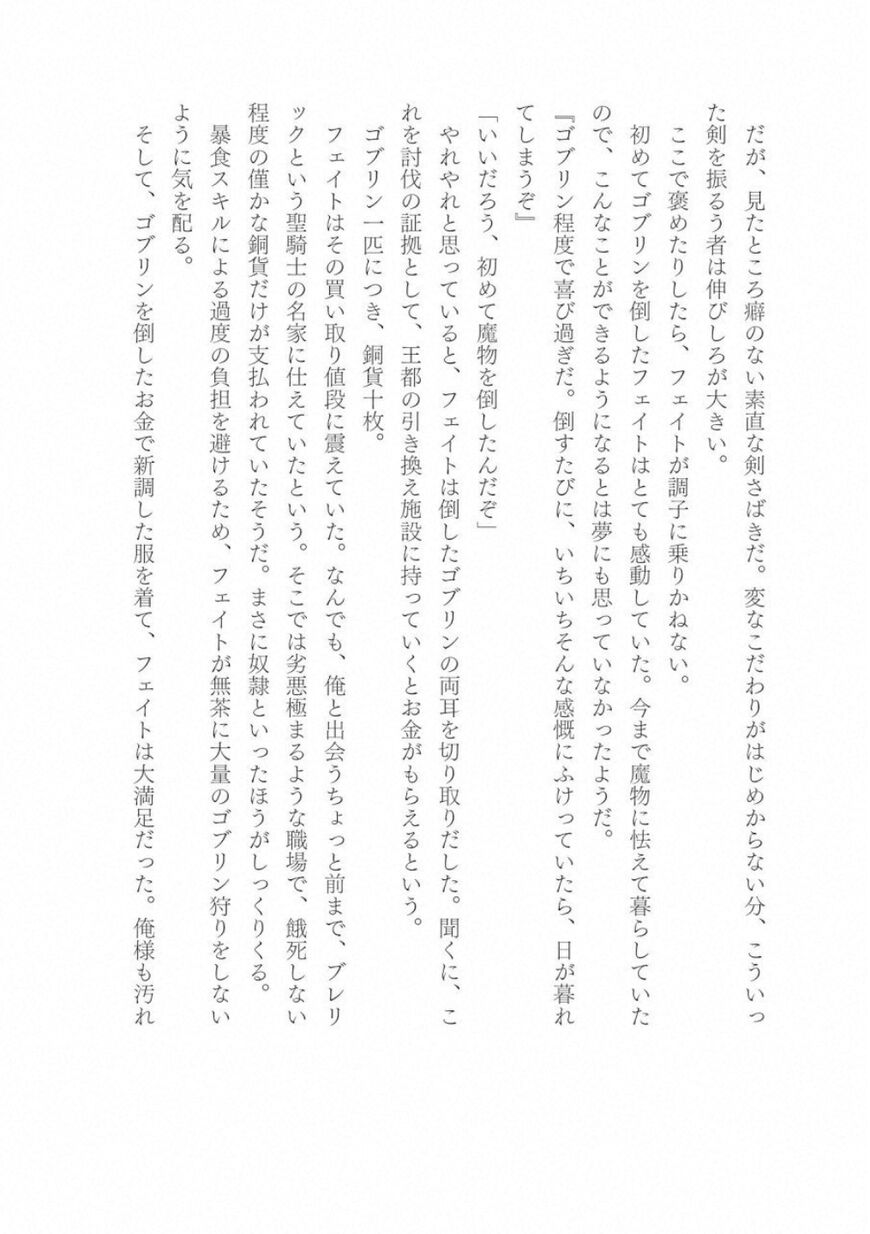 だが、見たところ癖のない素直な剣さばきだ。変なこだわりがはじめからない分、こういっ
た剣を振るう者は伸びしろが大きい。
ここで褒めたりしたら、フェイトが調子に乗りかねない。
初めてゴブリンを倒したフェイトはとても感動していた。今まで魔物に怯えて暮らしていた
ので、こんなことができるようになるとは夢にも思っていなかったようだ。
『ゴブリン程度で喜び過ぎだ。倒すたびに、いちいちそんな感慨にふけっていたら、日が暮れ
てしまうぞ』
「いいだろう、初めて魔物を倒したんだぞ」
やれやれと思っていると、フェイトは倒したゴブリンの両耳を切り取りだした。聞くに、こ
れを討伐の証拠として、王都の引き換え施設に持っていくとお金がもらえるという。
ゴブリン一匹につき、銅貨十枚。
フェイトはその買い取り値段に震えていた。なんでも、俺と出会うちょっと前まで、ブレリ
ックという聖騎士の名家に仕えていたという。そこでは劣悪極まるような職場で、餓死しない
程度の僅かな銅貨だけが支払われていたそうだ。まさに奴隷といったほうがしっくりくる。
暴食スキルによる過度の負担を避けるため、フェイトが無茶に大量のゴブリン狩りをしない
ように気を配る。
そして、ゴブリンを倒したお金で新調した服を着て、フェイトは大満足だった。俺様も汚れ